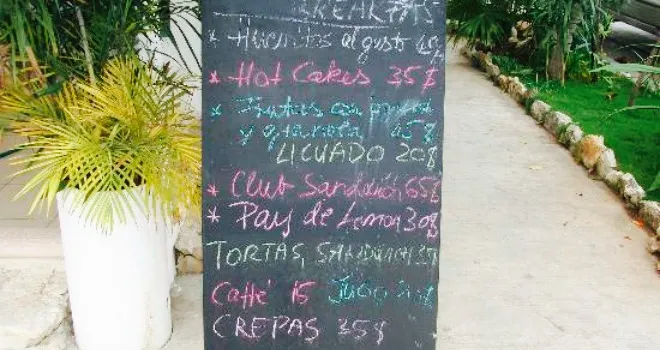 BREAKFAS
* Huevitos al gusto 40$
* Hot Cakes 35$
* Frutas con
y granola 45$
LICUADO 20$
* Club Sandwich 65$
* Pay de Lemon 30$
TORTAS, SANDWICH 35
Caffé 15 JUGO 20$
CREPAS 35$